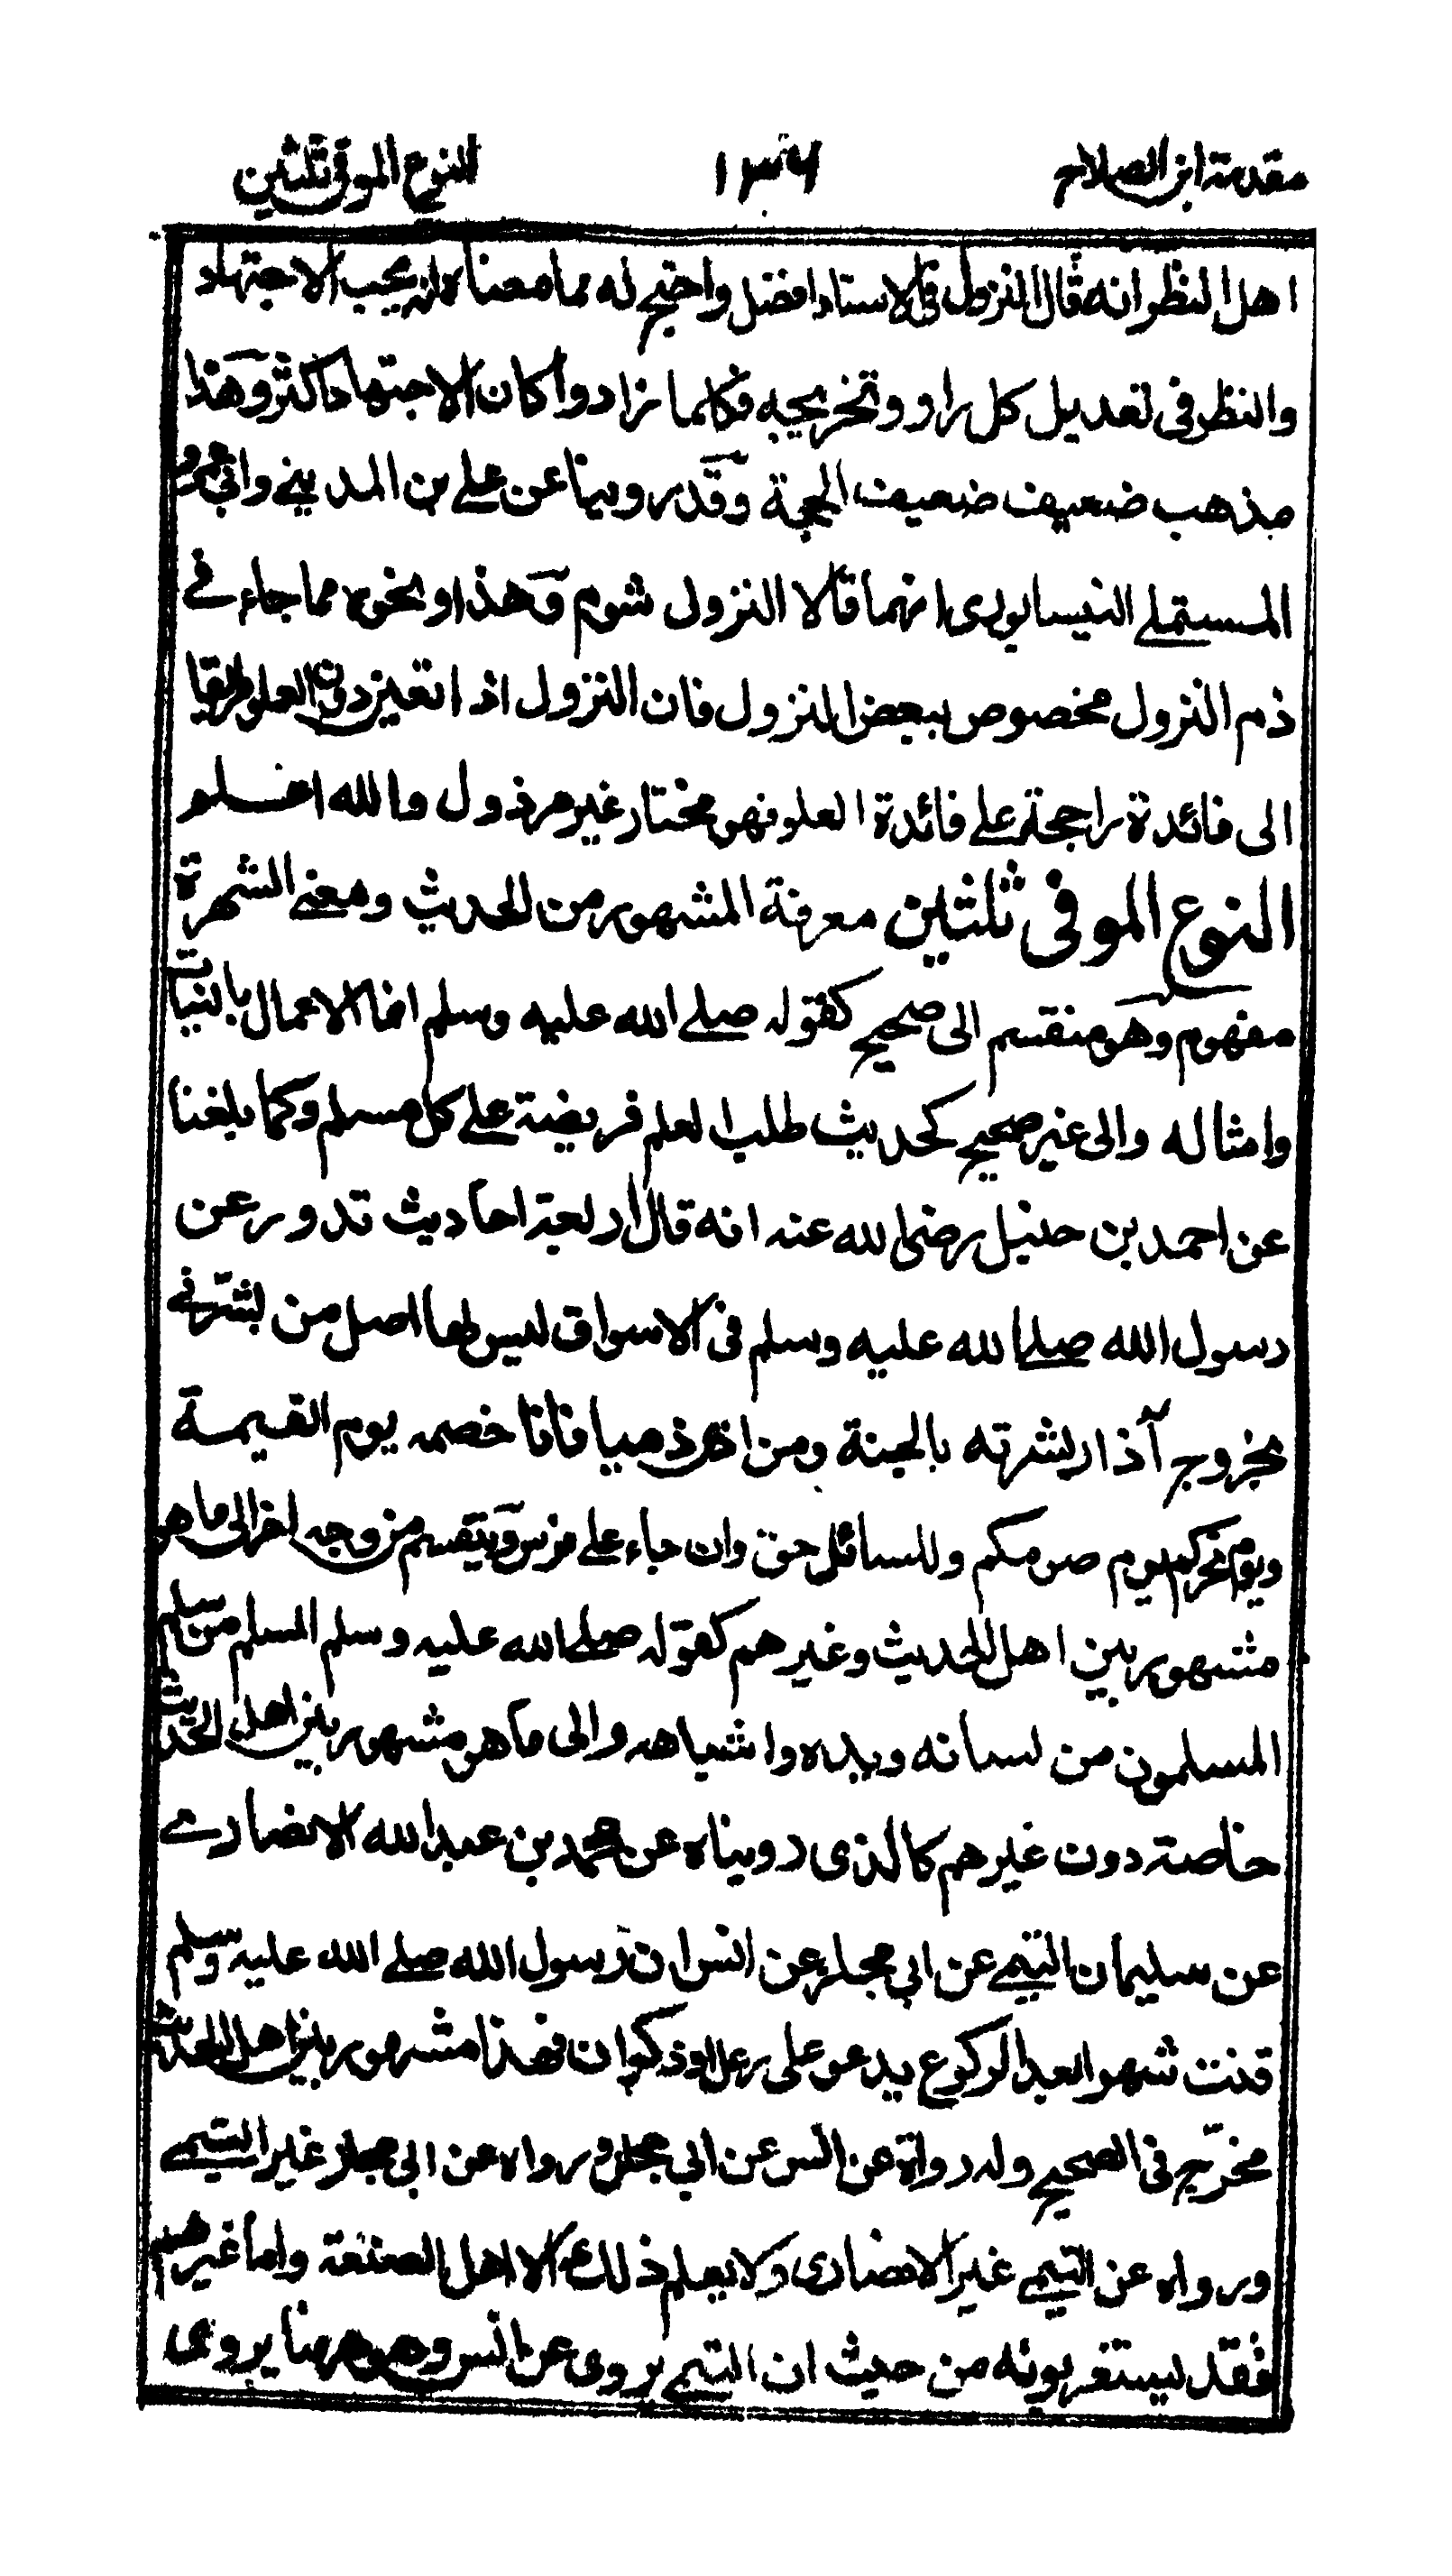 مقدمة ابن الصلاح ١٣٦ النوع الموفى ثلثين
اهل النظر انه قال النزول فى الاسناد افضل واحتج له بما معناه انه يجب الاجتهاد
والنظر فى تعديل كل راو وتخريجيه فكلما زادوا كان الاجتهاد اكثر وهذا
مذهب ضعيف ضعيف الحجة وقد روينا عن على بن المدينے وابى عمرو
المستملے النيسابورى انهما قالا النزول شوم وهذا ونحوه مما جاء فے
ذم النزول مخصوص ببعض النزول فان النزول اذا تعين دون العلو طريقا
الى فائدة راجحة على فائدة العلو فهو مختار غير مرذول والله اعلم
النوع الموفى ثلثين معرفة المشهور من الحديث ومعنے الشهرة
مفهوم وهو منقسم الى صحيح كقوله صلے الله عليه وسلم انما الاعمال بالنيات
وامثاله والى غير صحيح كحديث طلب العلم فريضة علے كل مسلم وكما بلغنا
عن احمد بن حنبل رضى الله عنه انه قال اربعة احاديث تدور عن
رسول الله صلے الله عليه وسلم فى الاسواق ليس لها اصل من بشرنے
بخروج آذار بشرته بالجنة ومن اذى ذميا فانا خصمه يوم القيمة
ويوم نحركم يوم صومكم وللسائل حق وان جاء علے فرس وينقسم من وجه اخر الى ما هو
مشهور بين اهل الحديث وغيرهم كقوله صلے الله عليه وسلم المسلم من سلم
المسلمون من لسانه ويده واشباهه والى ما هو مشهور بين اهل الحديث
خاصة دون غيرهم كالذى رويناه عن محمد بن عبد الله الانصارے
عن سليمان التيمے عن ابى مجلز عن انس ان رسول الله صلے الله عليه وسلم
قنت شهرا بعد الركوع يدعو على رعل وذكوان فهذا مشهور بين اهل الحديث
مخرّج فى الصحيح وله رواة عن انس عن ابى مجلز ورواه عن ابى مجلز غير التيمے
ورواه عن التيمے غير الانصارى ولا يعلم ذلك الا اهل الصنعة واما غيرهم
فقد يستغربونه من حيث ان التيمے يروى عن انس وهو ههنا يروى